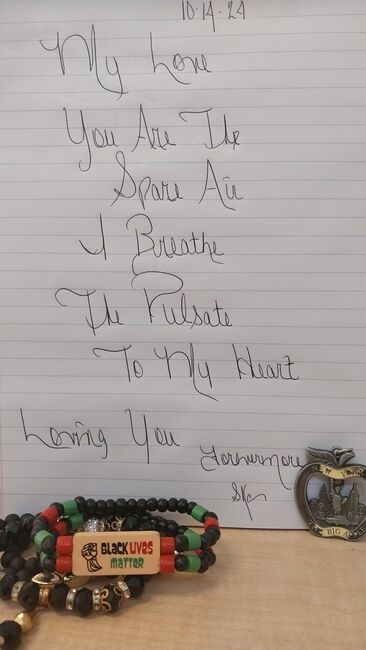 10-14-24
My Love
You Are The
Spare Air
I Breathe
The Pulsate
To My Heart
Loving You
Forhvermore
BLACK LIVES
MATTER
NEW YORK
BIG A